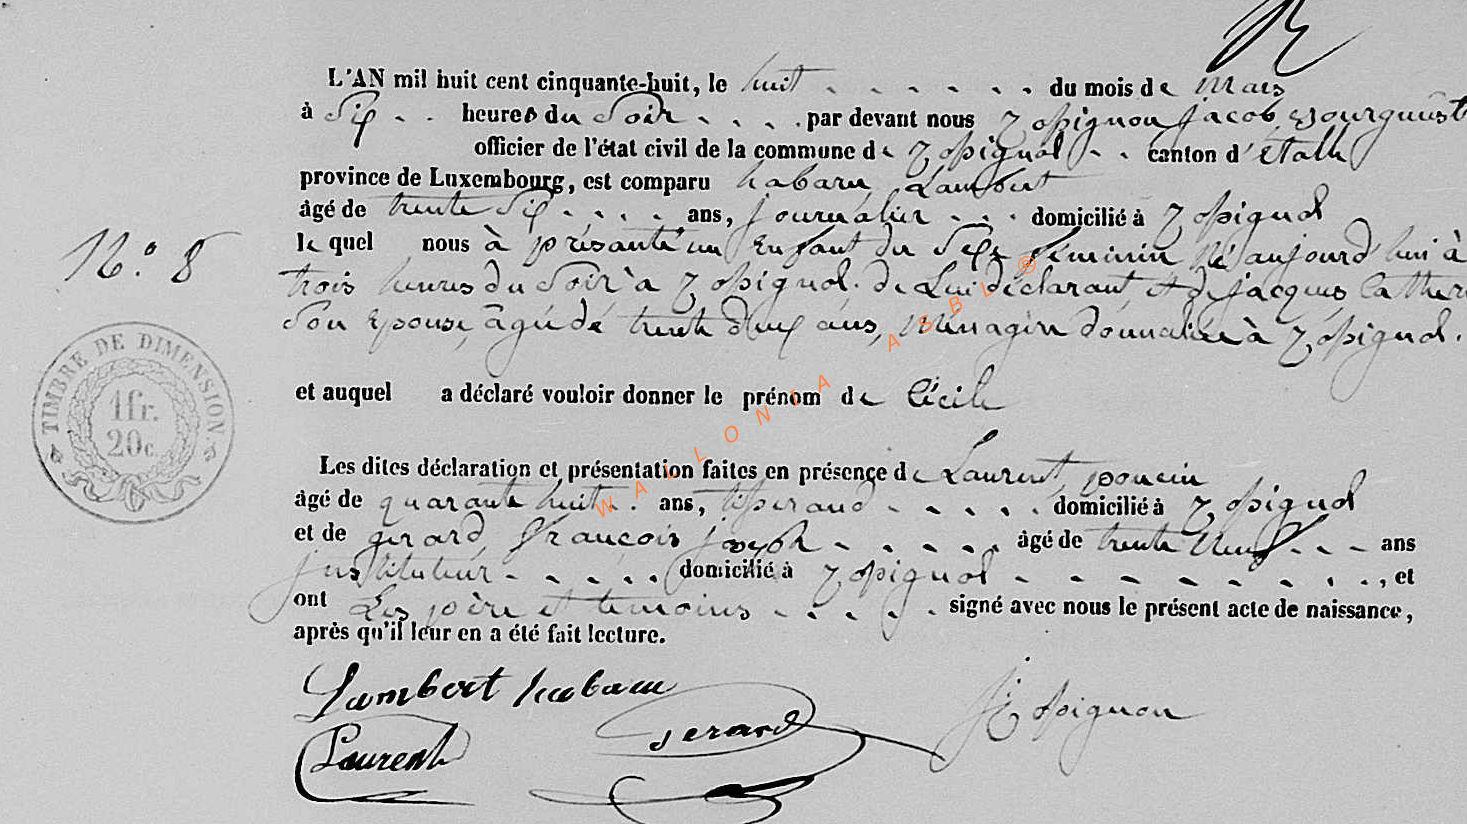 L'AN mil huit cent cinquante-huit, le huit du mois de Mars
à Six heures du Soir par devant nous jacob Bourguust
officier de l'état civil de la commune de canton d'étalle
province de Luxembourg, est comparu habaru Lambert
âgé de trente Six ans, journalier domicilié à
le quel nous à présanté un Enfant du Sexe féminin Né aujourd'hui à
trois heures du Soir à de Lui déclarant, et de jacques Cather
Son Epouse, âgé dé trente deux ans, Ménagère à
N.o 8
TIMBRE DE DIMENSION.
1fr.
20c.
et auquel a déclaré vouloir donner le prénom de Cécile
Les dites déclaration et présentation faites en présence de Laurent poncin
âgé de quarante huit ans, domicilié à
et de gerard françois joseph âgé de trente neuf ans
instituteur domicilié à , et
ont Les père et temoins signé avec nous le présent acte de naissance,
après qu'il leur en a été fait lecture.
Lambert habaru
Gerard
Laurent
WALLONIA ASBL ®